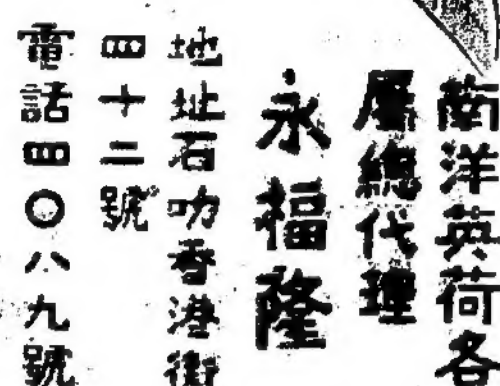 南洋英荷各
屬總代理
永福隆
地址石叻香港街
四十二號
電話四〇八九號